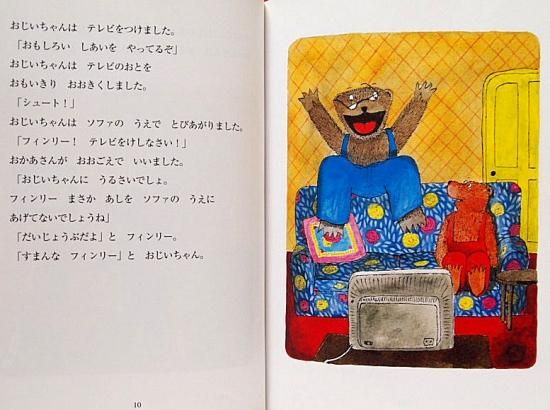 おじいちゃんは　テレビをつけました。
「おもしろい　しあいを　やってるぞ」
おじいちゃんは　テレビのおとを
おもいきり　おおきくしました。
「シュート！」
おじいちゃんは　ソファの　うえで　とびあがりました。
「フィンリー！　テレビをけしなさい！」
おかあさんが　おおごえで　いいました。
「おじいちゃんに　うるさいでしょ。
フィンリー　まさか　あしを　ソファの　うえに
あげてないでしょうね」
「だいじょうぶだよ」と　フィンリー。
「すまんな　フィンリー」と　おじいちゃん。
10